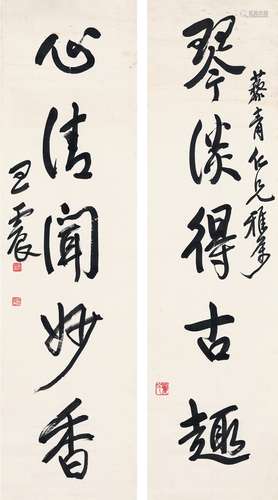 琴淡得古趣
藜青仁兄雅屬
心清聞妙香
王震